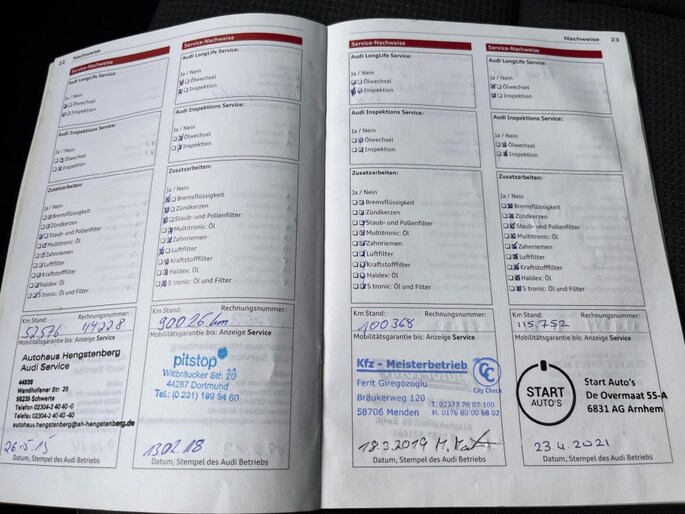 22 Nachweise
Service-Nachweise
Audi LongLife Service:
Ja / Nein
Ölwechsel
Inspektion
Audi Inspektions Service:
Ja / Nein
Ölwechsel
Inspektion
Zusatzarbeiten:
Ja / Nein
Bremsflüssigkeit
Zündkerzen
Staub- und Pollenfilter
Multitronic: Öl
Zahnriemen
Luftfilter
Kraftstofffilter
Haldex: Öl
S tronic: Öl und Filter
Km Stand: Rechnungsnummer:
52576 44228
Mobilitätsgarantie bis: Anzeige Service
Autohaus Hengstenberg
Audi Service
Wandhofener Str. 25
58239 Schwerte
Telefon 02304-2 40 40 -0
autohaus.hengstenberg@ah-hengstenberg.de
26.5.15
Datum, Stempel des Audi Betriebs
Service-Nachweise
Audi LongLife Service:
Ja / Nein
Ölwechsel
Inspektion
Audi Inspektions Service:
Ja / Nein
Ölwechsel
Inspektion
Zusatzarbeiten:
Ja / Nein
Bremsflüssigkeit
Zündkerzen
Staub- und Pollenfilter
Multitronic: Öl
Zahnriemen
Luftfilter
Kraftstofffilter
Haldex: Öl
S tronic: Öl und Filter
Km Stand: Rechnungsnummer:
90026 km
Mobilitätsgarantie bis: Anzeige Service
pitstop
Wittbräucker Str. 20
44287 Dortmund
Tel.: (0 231) 189 54 60
13.02.18
Datum, Stempel des Audi Betriebs
Nachweise 23
Service-Nachweise
Audi LongLife Service:
Ja / Nein
Ölwechsel
Inspektion
Audi Inspektions Service:
Ja / Nein
Ölwechsel
Inspektion
Zusatzarbeiten:
Ja / Nein
Bremsflüssigkeit
Zündkerzen
Staub- und Pollenfilter
Multitronic: Öl
Zahnriemen
Luftfilter
Kraftstofffilter
Haldex: Öl
S tronic: Öl und Filter
Km Stand: Rechnungsnummer:
100368
Mobilitätsgarantie bis: Anzeige Service
Kfz - Meisterbetrieb
CC
City Check
Ferit Giregözoglu
Bräukerweg 120
58706 Menden
T. 02373 76 07 100
M. 0176 80 00 68 02
18.3.2019
Datum, Stempel des Audi Betriebs
Service-Nachweise
Audi LongLife Service:
Ja / Nein
Ölwechsel
Inspektion
Audi Inspektions Service:
Ja / Nein
Ölwechsel
Inspektion
Zusatzarbeiten:
Ja / Nein
Bremsflüssigkeit
Zündkerzen
Staub- und Pollenfilter
Multitronic: Öl
Zahnriemen
Luftfilter
Kraftstofffilter
Haldex: Öl
S tronic: Öl und Filter
Km Stand: Rechnungsnummer:
115.757
Mobilitätsgarantie bis: Anzeige Service
START
AUTO'S
Start Auto's
De Overmaat 55-A
6831 AG Arnhem
23.4.2021
Datum, Stempel des Audi Betriebs